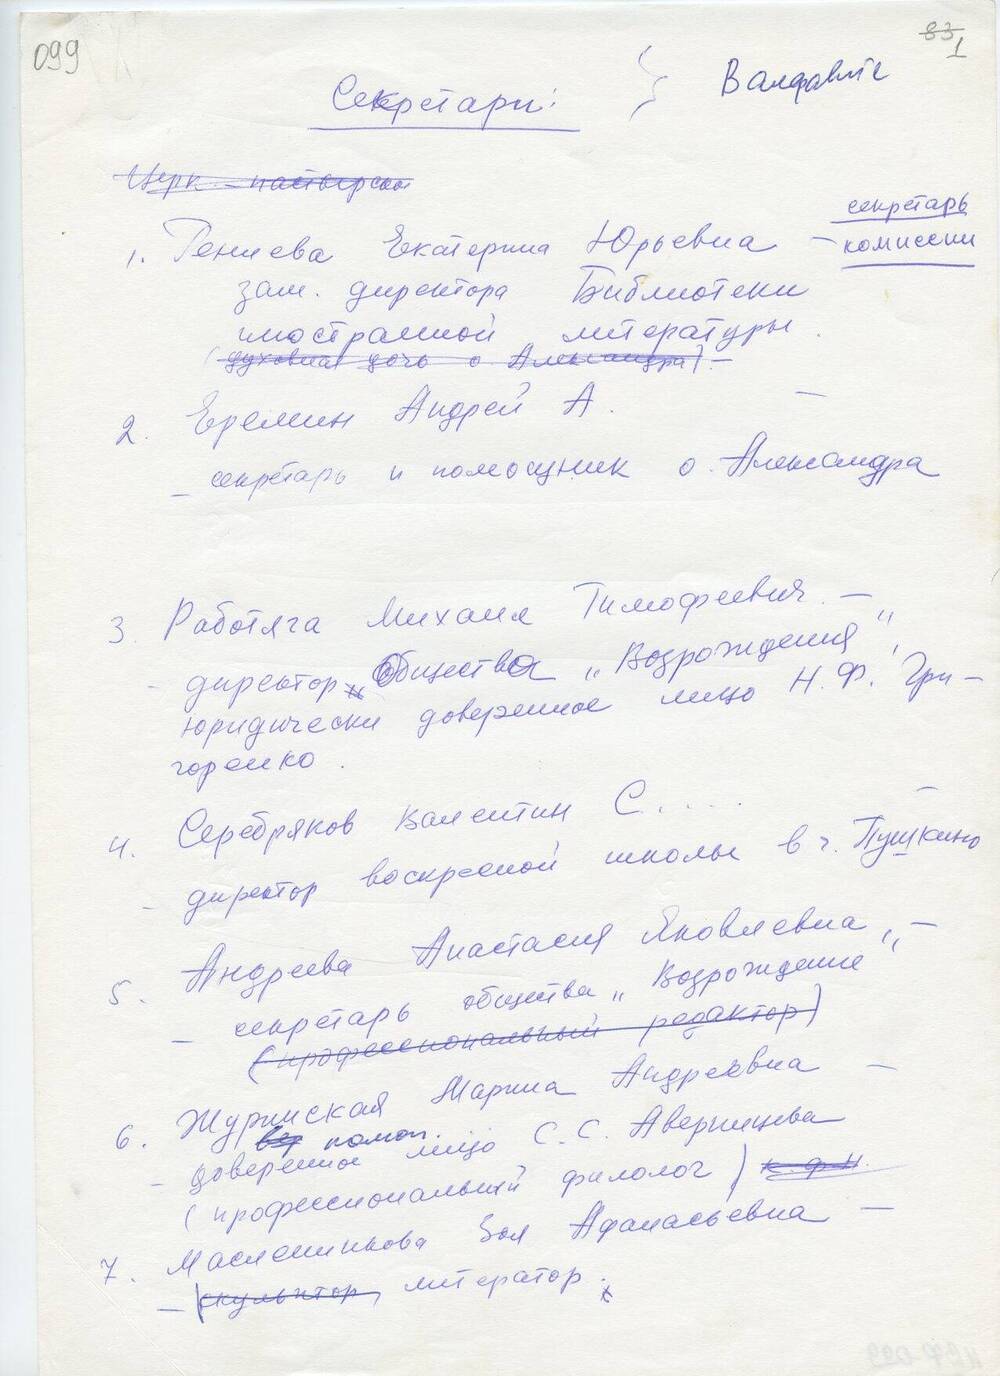 099
83
1
Секретари:
В алфавите
Церк. - пастырская
1. Гениева Екатерина Юрьевна — секретарь комиссии
зам. директора Библиотеки
иностранной литературы.
(духовная дочь о Александра) —
2. Еремин Андрей А. —
— секретарь и помощник о. Александра
3. Работяга Михаил Тимофеевич. —
- директор общества „Возрождения",
юридически доверенное лицо Н.Ф. Гри-
горенко.
4. Серебряков Валентин С.... —
- директор воскресной школы в г. Пушкино
5. Андреева Анастасия Яковлевна —
— секретарь общества „Возрождение"
(профессиональный редактор)
6. Журинская Марина Андреевна —
помощ.
- доверенное лицо С.С. Аверинцева
(профессиональный филолог) к.ф.н.
7. Масленикова Зоя Афанасьевна —
— (скульптор, литератор.